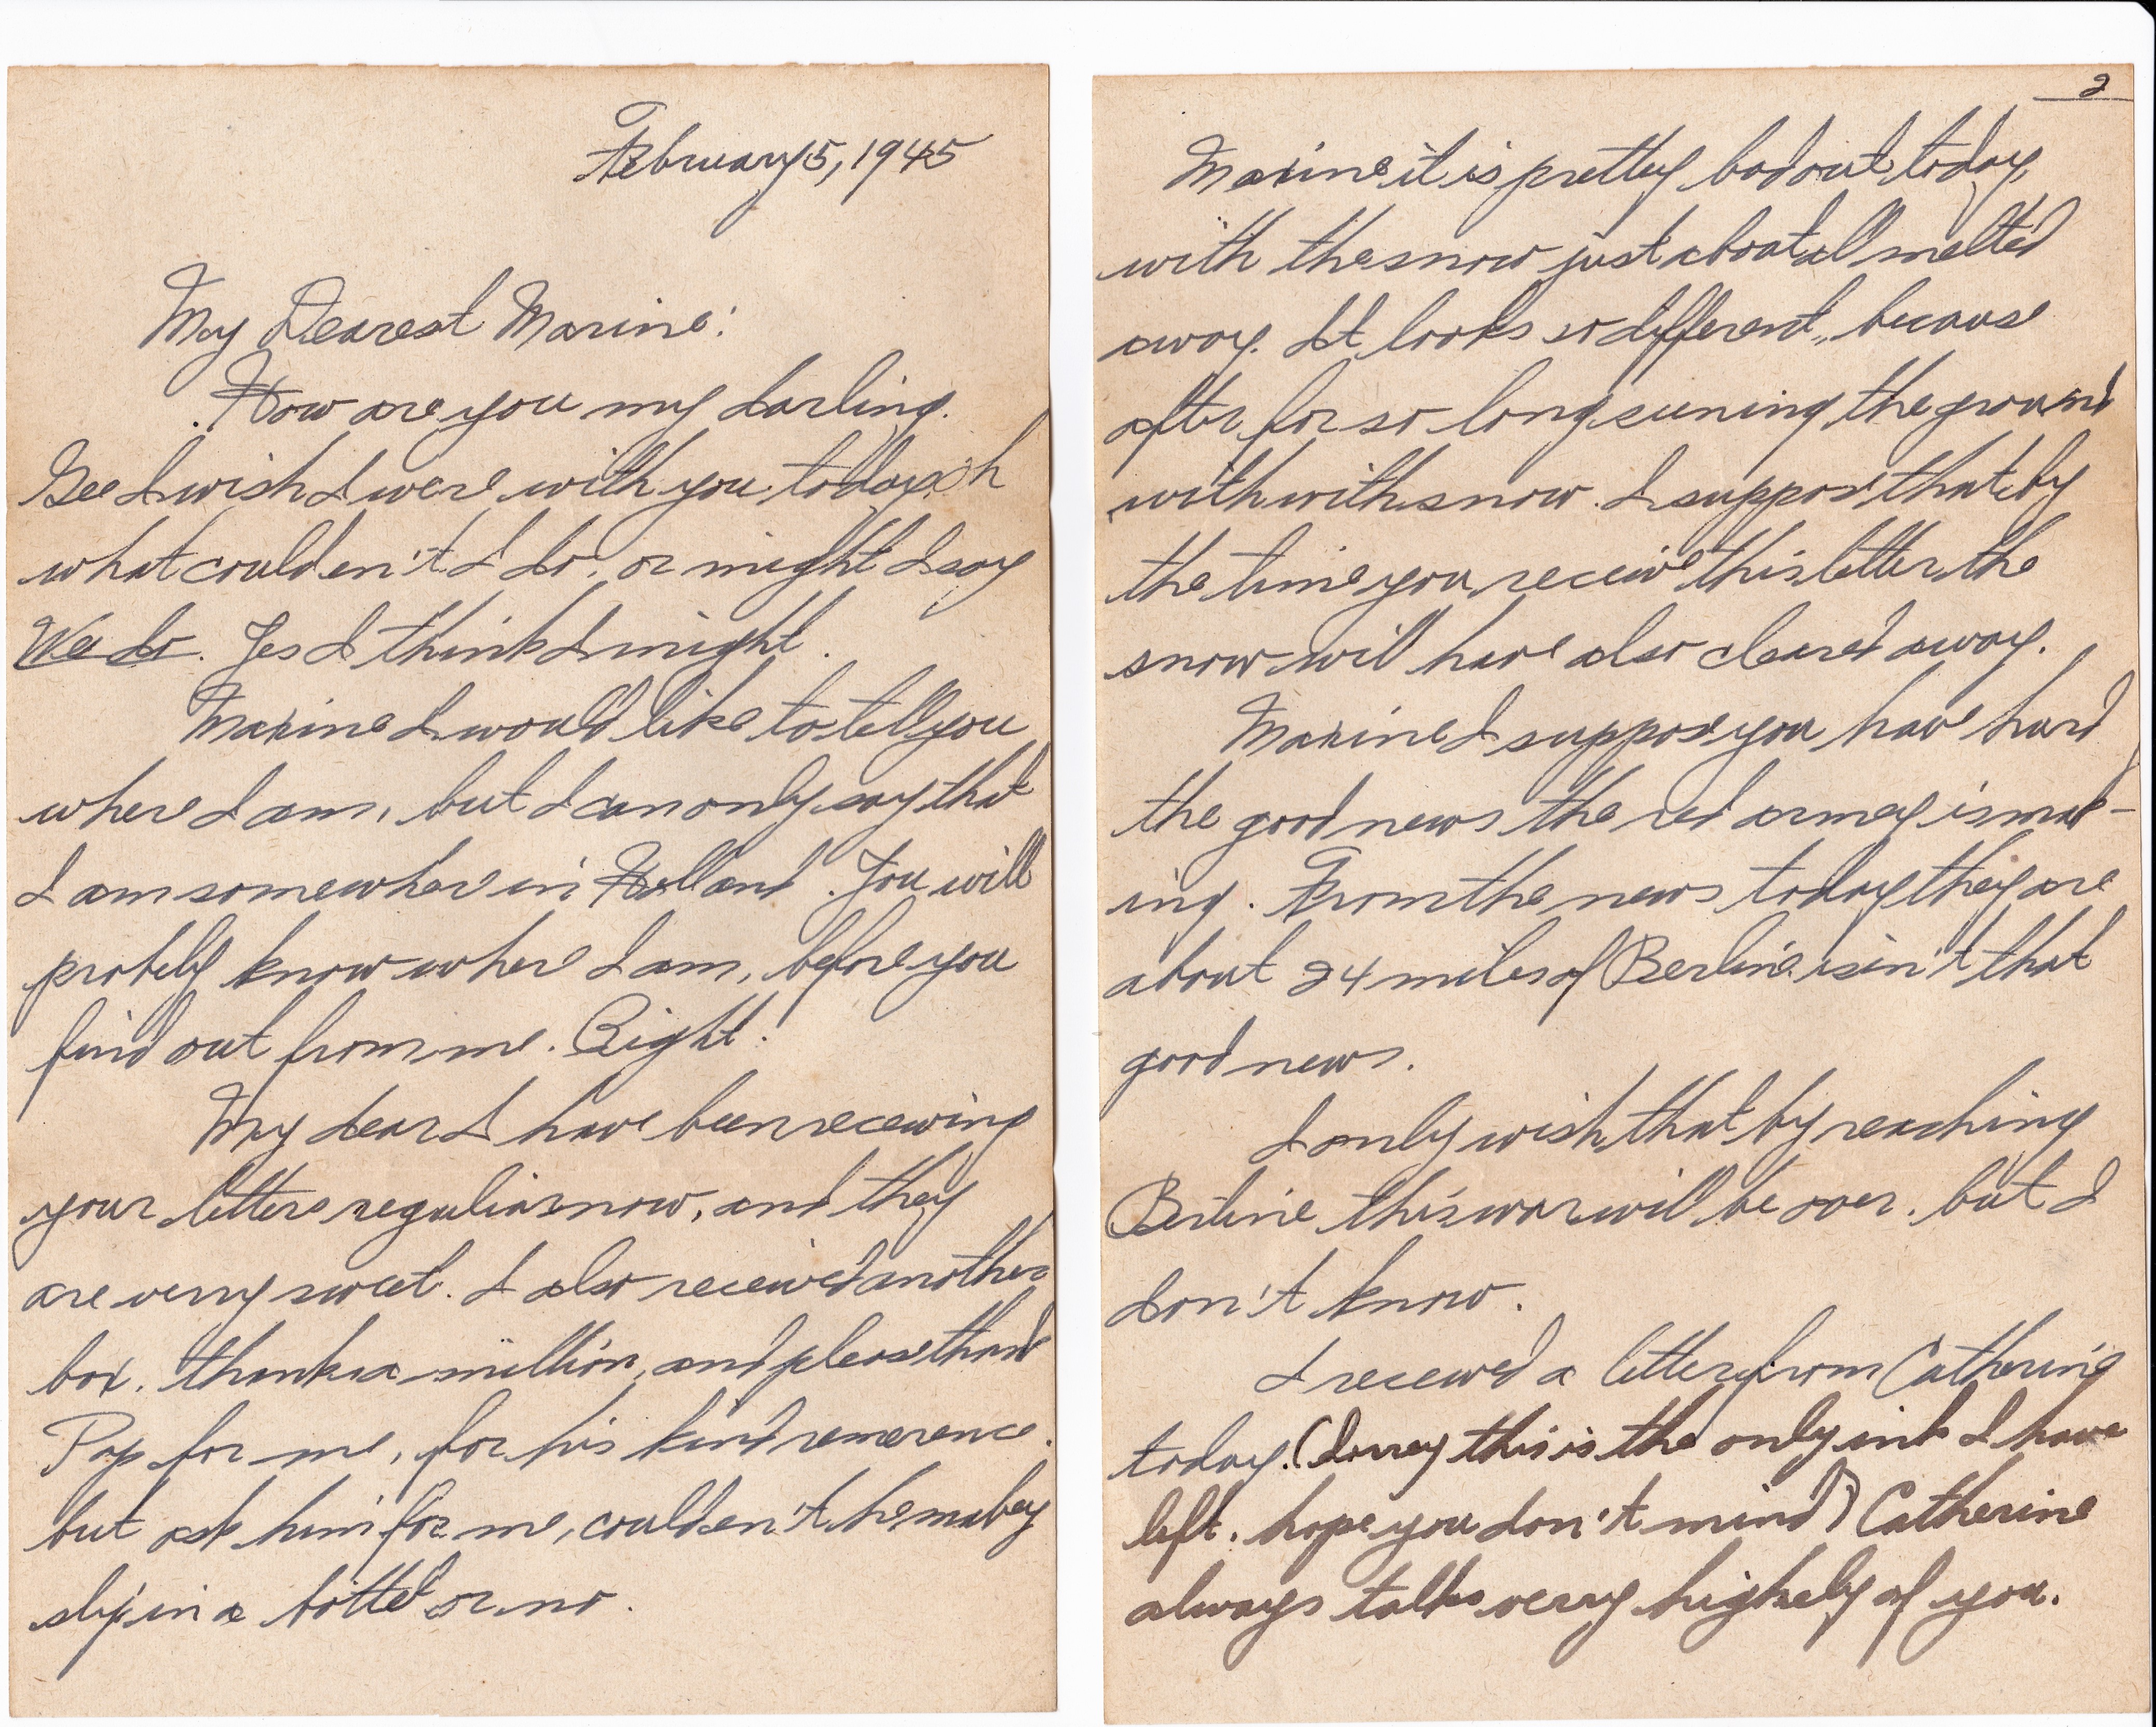 February 5, 1945
My Dearest Maxine:
How are you my darling.
Gee I wish I were with you today oh
what coulden't I do, or might I say
We do. Yes I think I might.
Maxine I would like to tell you
where I am, but I can only say that
I am somewhere in Holland. You will
probely know where I am, before you
find out from me. Right!
My dear I have been receiving
your letters reguliar now, and they
are verry sweet. I also received another
box. thanks a million, and please thank
Pop for me, for his kind remerence.
but ask him for me, coulden't he mabey
slip in a bottel or no.
2
Maxine it is pretty bad out today,
with the snow just about all melted
away. It looks so different, because
after for so long seening the ground
with with snow. I suppose that by
the time you receive this letter the
snow will have also cleared away.
Maxine I suppose you have hard
the good news the red armey is mak-
ing. From the news today they are
about 24 miles of Berline isin't that
good news.
I only wish that by reaching
Berline this war will be over. but I
don't know.
I received a letter from Catherine
today. (Sorrey this is the only ink I have
left. hope you don't mind) Catherine
always talks verry highely of you.